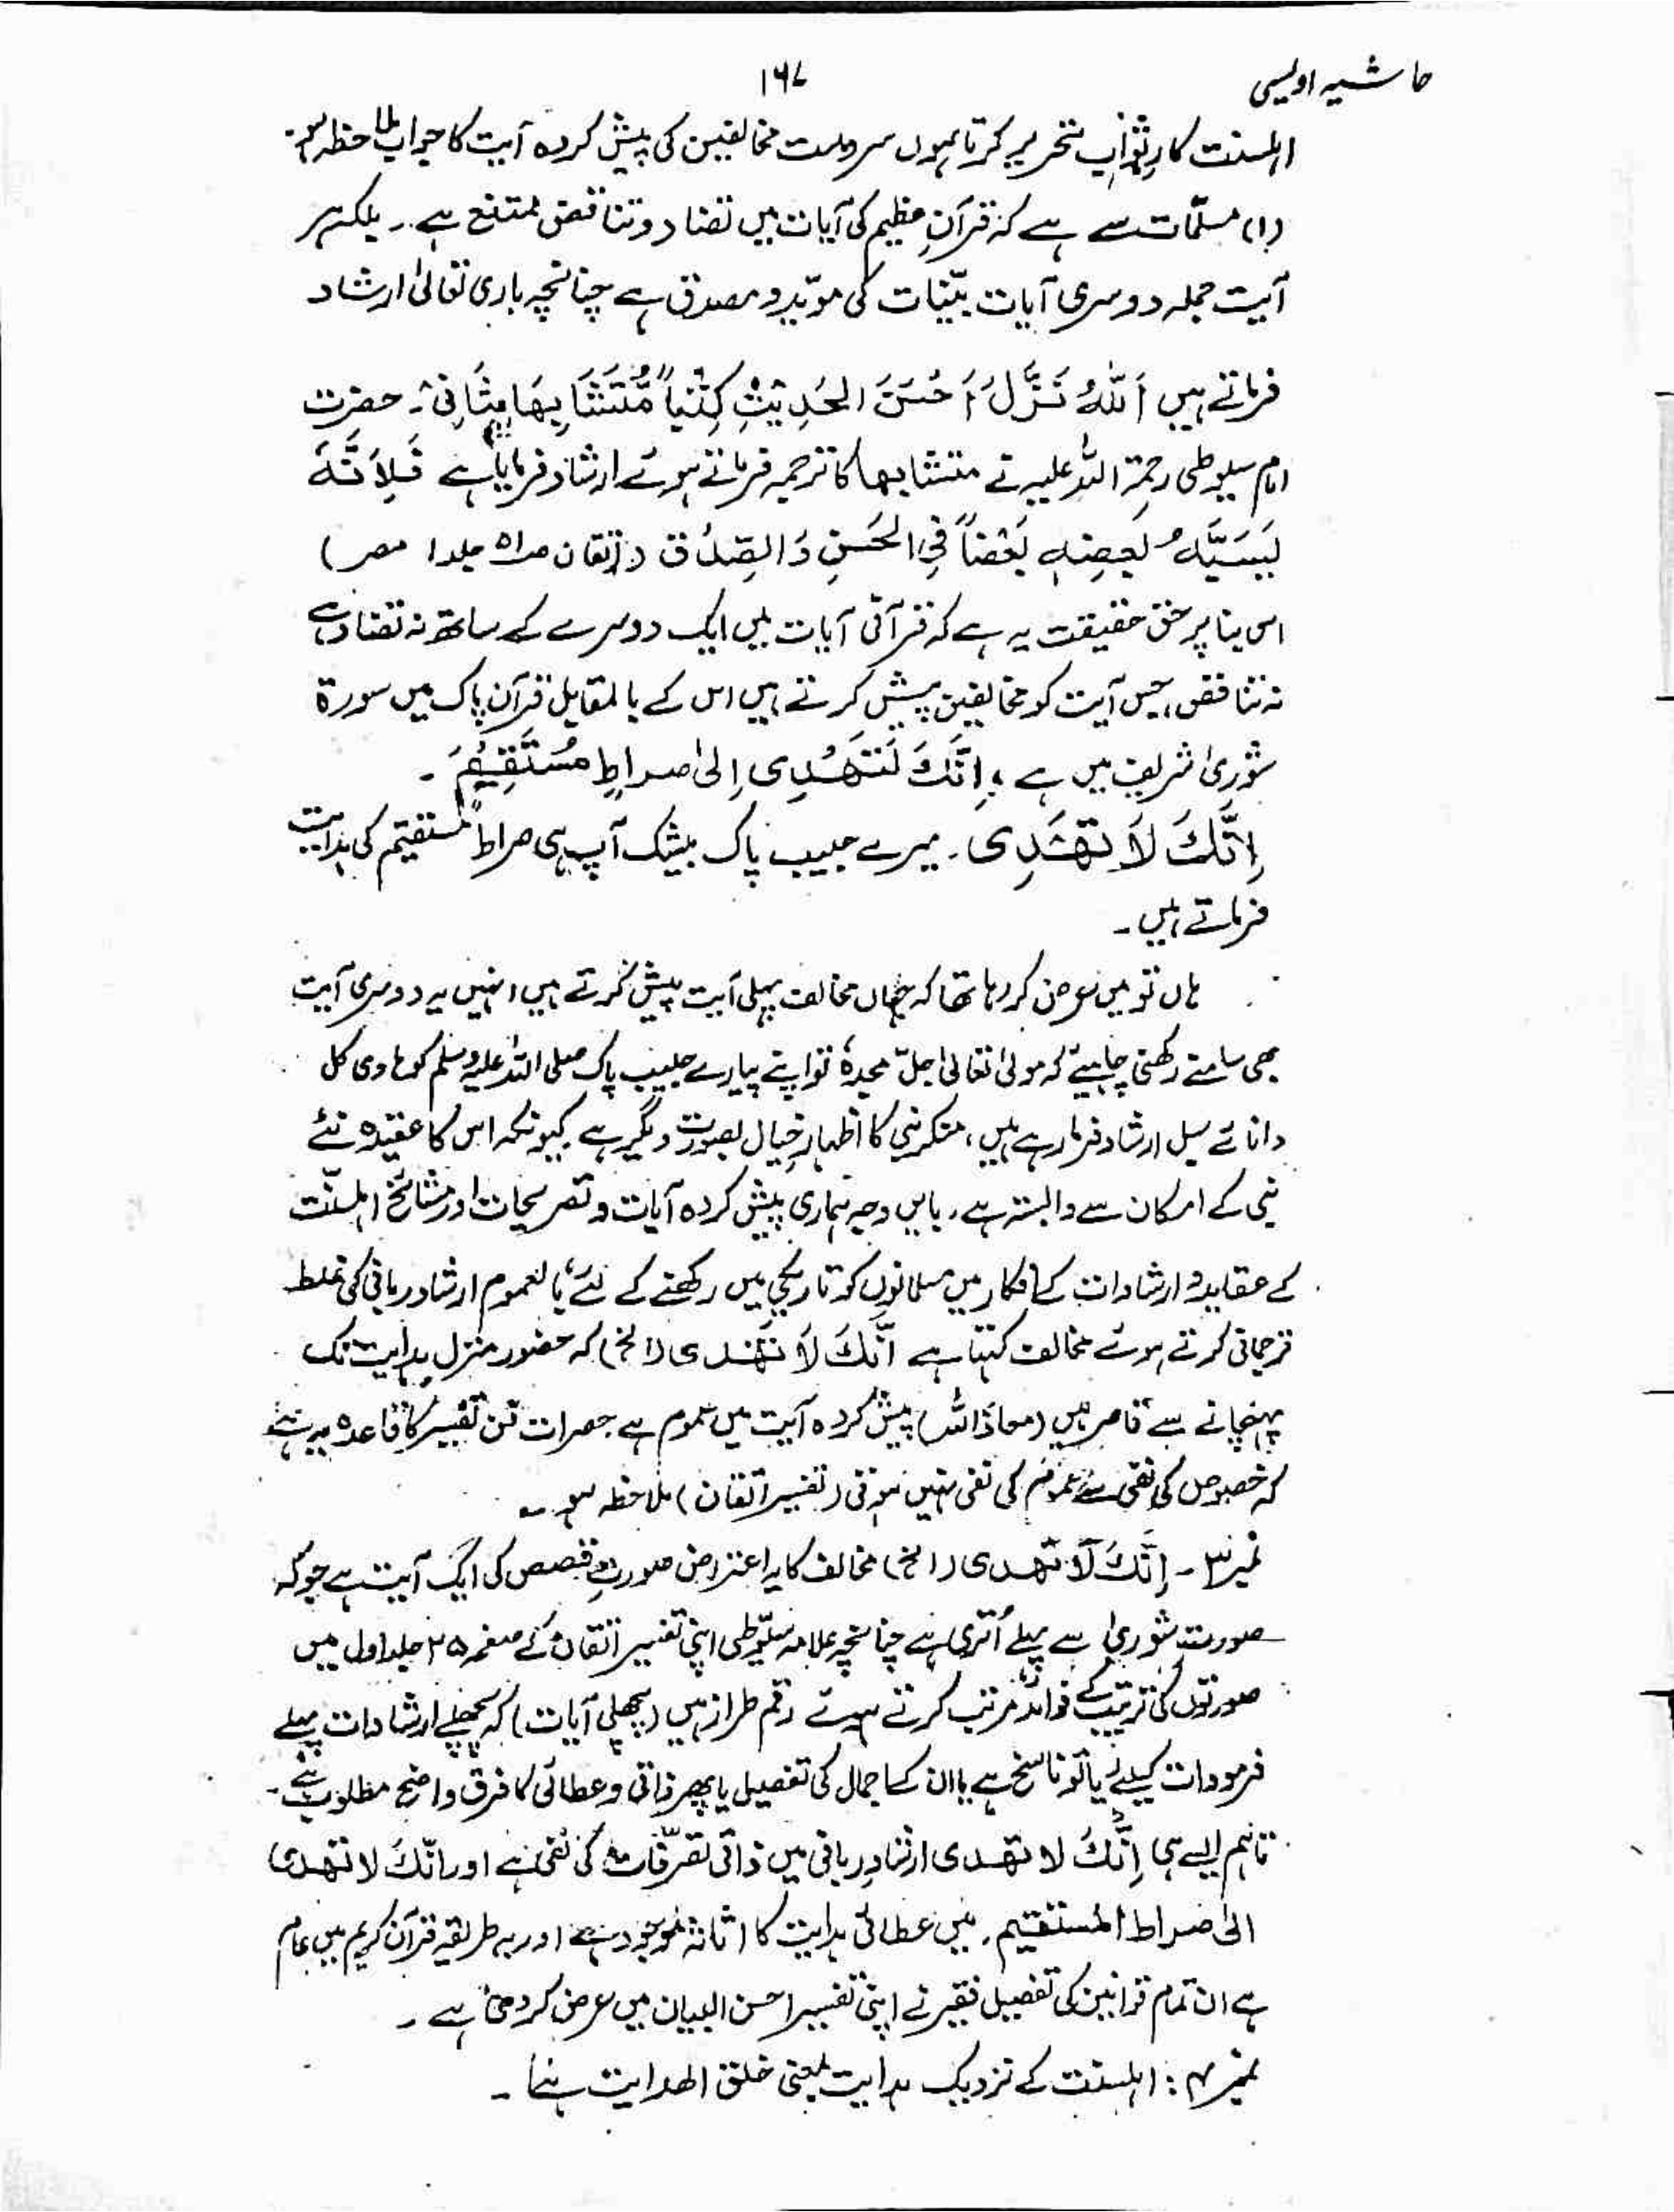 حاشیہ اویسی
۱۶۷
اہلسنت کار ثواب تحریر کرتا ہوں سردست مخالفین کی پیش کردہ آیت کا جواب ملاحظہ ہو۔
(۱) مسلّمات سے ہے کہ قرآنِ عظیم کی آیات میں تضاد و تناقض ممتنع ہے۔ بلکہ ہر
آیت جملہ دوسری آیات بیّنات کی موّید و مصدق ہے چنانچہ باری تعالیٰ ارشاد
فرماتے ہیں اَللّٰہُ نَزَّلَ اَحْسَنَ الحَدِیْثِ کِتٰباً مُّتَشَابِھَا مِثَانِیْ۔ حضرت
امام سیوطی رحمۃ اللہ علیہ نے متشابھا کا ترجمہ فرماتے ہوئے ارشاد فرمایا ہے فَلِاَنَّہَ
بَعضِہٖ بَعْضاً فِی الحَسَنِ وَالصِّدْق (اتقان جلد ۱ مصر)
اس بنا پر حق حقیقت یہ ہے کہ قرآنی آیات میں ایک دوسرے کے ساتھ نہ تضاد ہے
نہ تناقض، جس آیت کو مخالفین پیش کرتے ہیں اس کے بالمقابل قرآن پاک میں سورۃ
شوریٰ شریف میں ہے، اِنَّکَ لَتَھْدِی اِلیٰ صراطٍ مُسْتَقِیْمَ۔
اِنَّکَ لَا تَھْدِی۔ میرے حبیب پاک بیشک آپ ہی صراط مستقیم کی ہدایت
فرماتے ہیں۔
ہاں تو میں عرض کر رہا تھا کہ جہاں مخالف پہلی آیت پیش کرتے ہیں انہیں یہ دوسری آیت
بھی سامنے رکھنی چاہیے کہ مولیٰ تعالیٰ جلّ مجدہٗ تو اپنے پیارے حبیب پاک صلی اللہ علیہ وسلم کو ہادی کل
دانائے سبل ارشاد فرما رہے ہیں، منکر نبی کا اظہارِ خیال بصورت دیگر ہے کیونکہ اس کا عقیدہ نئے
نبی کے امکان سے وابستہ ہے۔ بایں وجہ ہماری پیش کردہ آیات و تصریحات اور مشائخ اہلسنّت
کے عقاید و ارشادات کے افکار میں مسلمانوں کو تاریکی میں رکھنے کے لئے بالعموم ارشاد ربانی کی غلط
ترجمانی کرتے ہوئے مخالف کہتا ہے اِنَّکَ لَا تَھْدی (الخ) کہ حضور منزل ہدایت تک
پہنچانے سے قاصر ہیں (معاذ اللہ) پیش کردہ آیت میں عموم ہے حضرات فن تفسیر کا قاعدہ یہ ہے
کہ خصوص کی نفی سے عموم کی نفی نہیں ہوتی (تفسیر اتقان) ملاحظہ ہو۔
نمبر ۳۔ اِنَّکَ لَا تَھدی (الخ) مخالف کا یہ اعتراض صورتِ قصص کی ایک آیت ہے جو کہ
صورت شوریٰ سے پہلے اُتری ہے چنانچہ علامہ سیّوطی اپنی تفسیر اتقان کے صفحہ ۲۵ جلد اول میں
صورتوں کی ترتیب کے فوائد مرتب کرتے ہوئے رقم طراز ہیں (پچھلی آیات) کہ پچھلے ارشادات پہلے
فرمودات کیلئے یا تو ناسخ ہے یا ان کے اجمال کی تفصیل یا پھر ذاتی و عطائی کا فرق واضح مطلوب ہے۔
تاہم ایسے ہی اِنَّکَ لا تھدی ارشادِ ربانی میں ذاتی تصرّفات کی نفی ہے اور انّکَ لا تھدی
الیٰ صراط المستقیم۔ میں عطائی ہدایت کا اثاثہ موجود ہے اور یہ طریقہ قرآن کریم میں عام
ہے ان تمام قوانین کی تفصیل فقیر نے اپنی تفسیر احسن البیان میں عرض کر دی ہے۔
نمبر ۴: اہلسنت کے نزدیک ہدایت بمعنی خلق الھدایت ہے۔